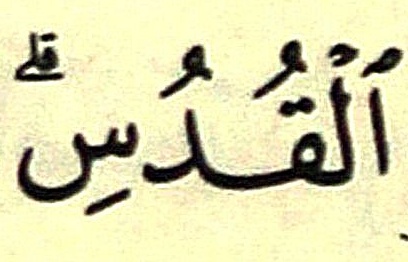 ٱلْقُدُسِ ۗ